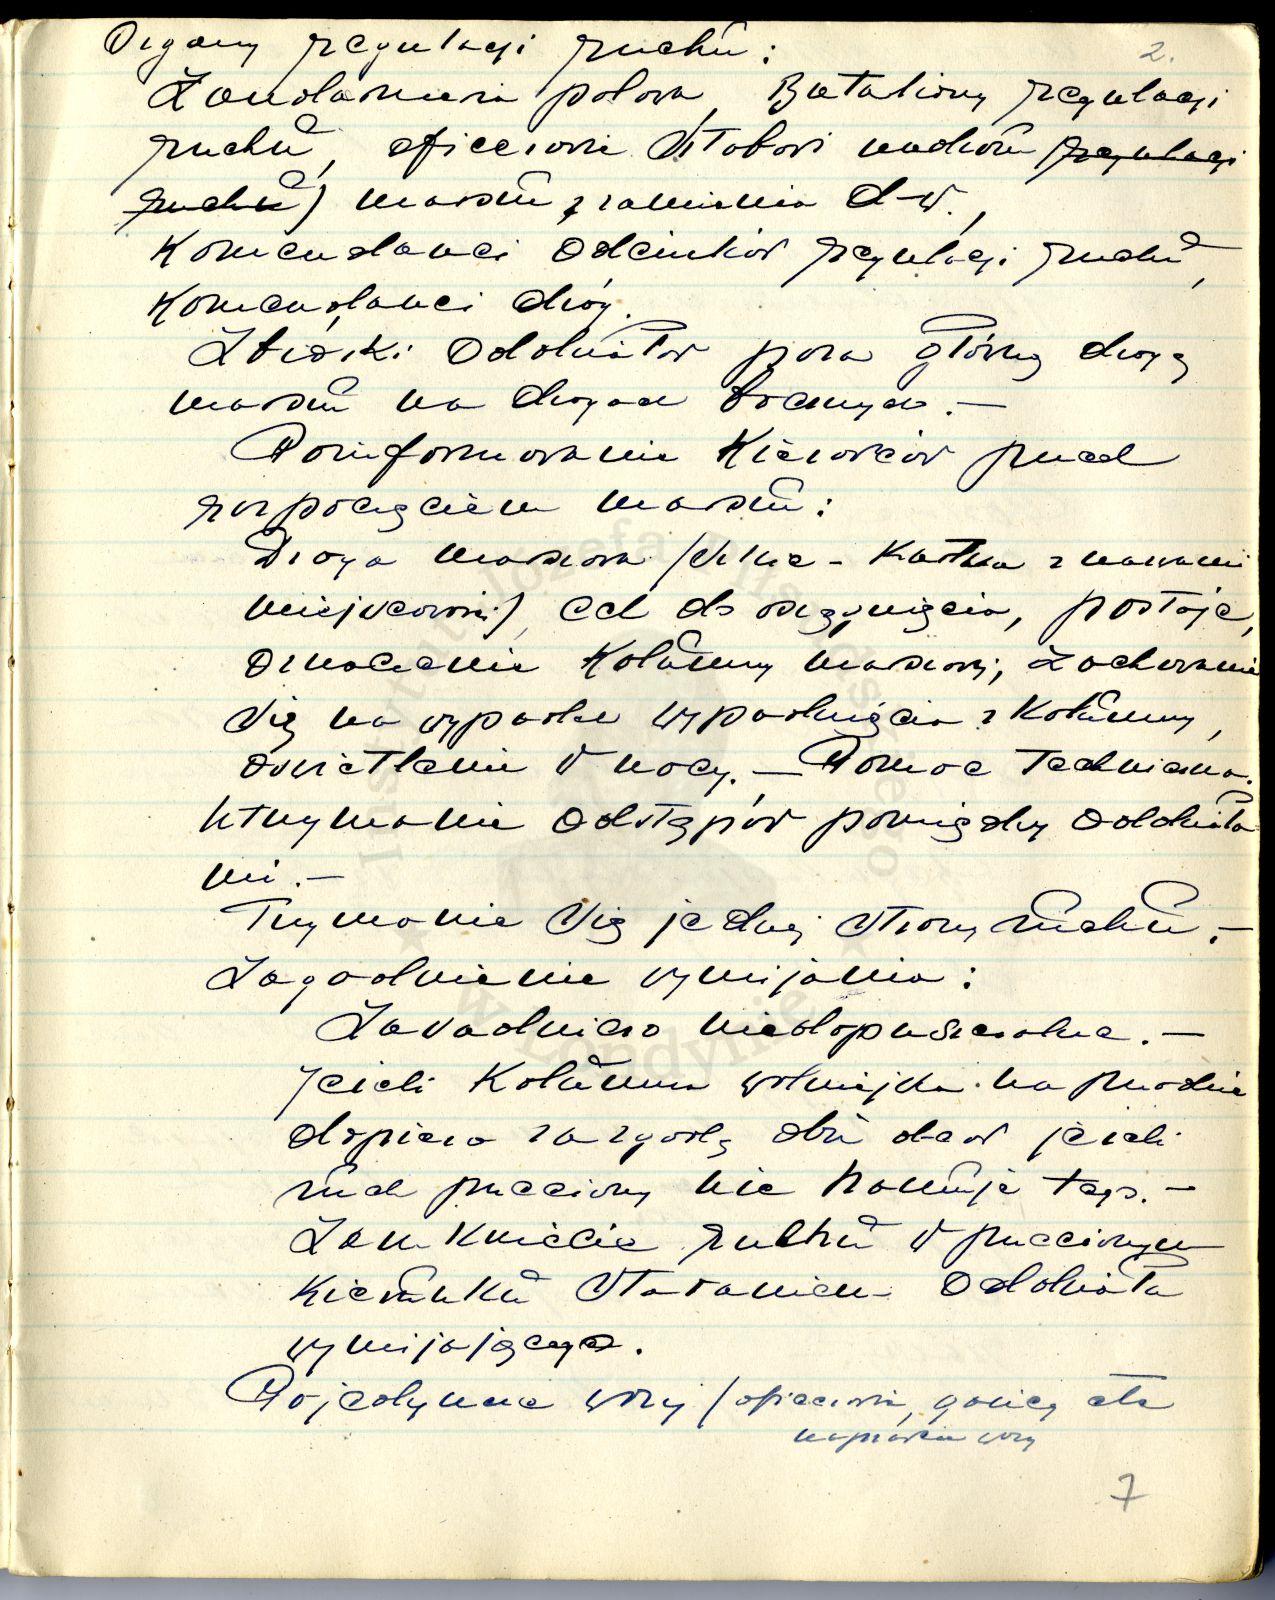 2.
Organy regulacji ruchu:
Żandarmeria polowa, Bataliony regulacji
ruchu, oficerowie sztabowi ruchu (regulacji
ruchu) marszu z ramienia d-w.,
Komendanci odcinków regulacji ruchu,
Komendanci dróg.
Zbiórki oddziałów poza główną drogą
marszu na drogach bocznych. –
Poinformowanie kierowców przed
rozpoczęciem marszu:
Droga marszowa (szkic - kartka z nazwami
miejscowości), cel do osiągnięcia, postoje,
oznaczenie kolumny marszowej, zachowanie
się na wypadek wypadnięcia z kolumny,
oświetlenie w nocy. – Pomoc techniczna.
Utrzymanie odstępów pomiędzy oddziała
mi. –
Trzymanie się jednej strony ruchu. –
Zagadnienie wymijania:
Zasadniczo niedopuszczalne. –
Jeżeli kolumna wymija na przodzie
dopiero za zgodą obu dców jeżeli
ruch przeciwny nie hamuje tego. –
Zamknięcie ruchu w przeciwnym
kierunku staraniem oddziału
wymijającego.
Pojedyncze wozy (oficerowie, gońcy etc
naprawcze wozy
7
Instytut Józefa Piłsudskiego
w Londynie